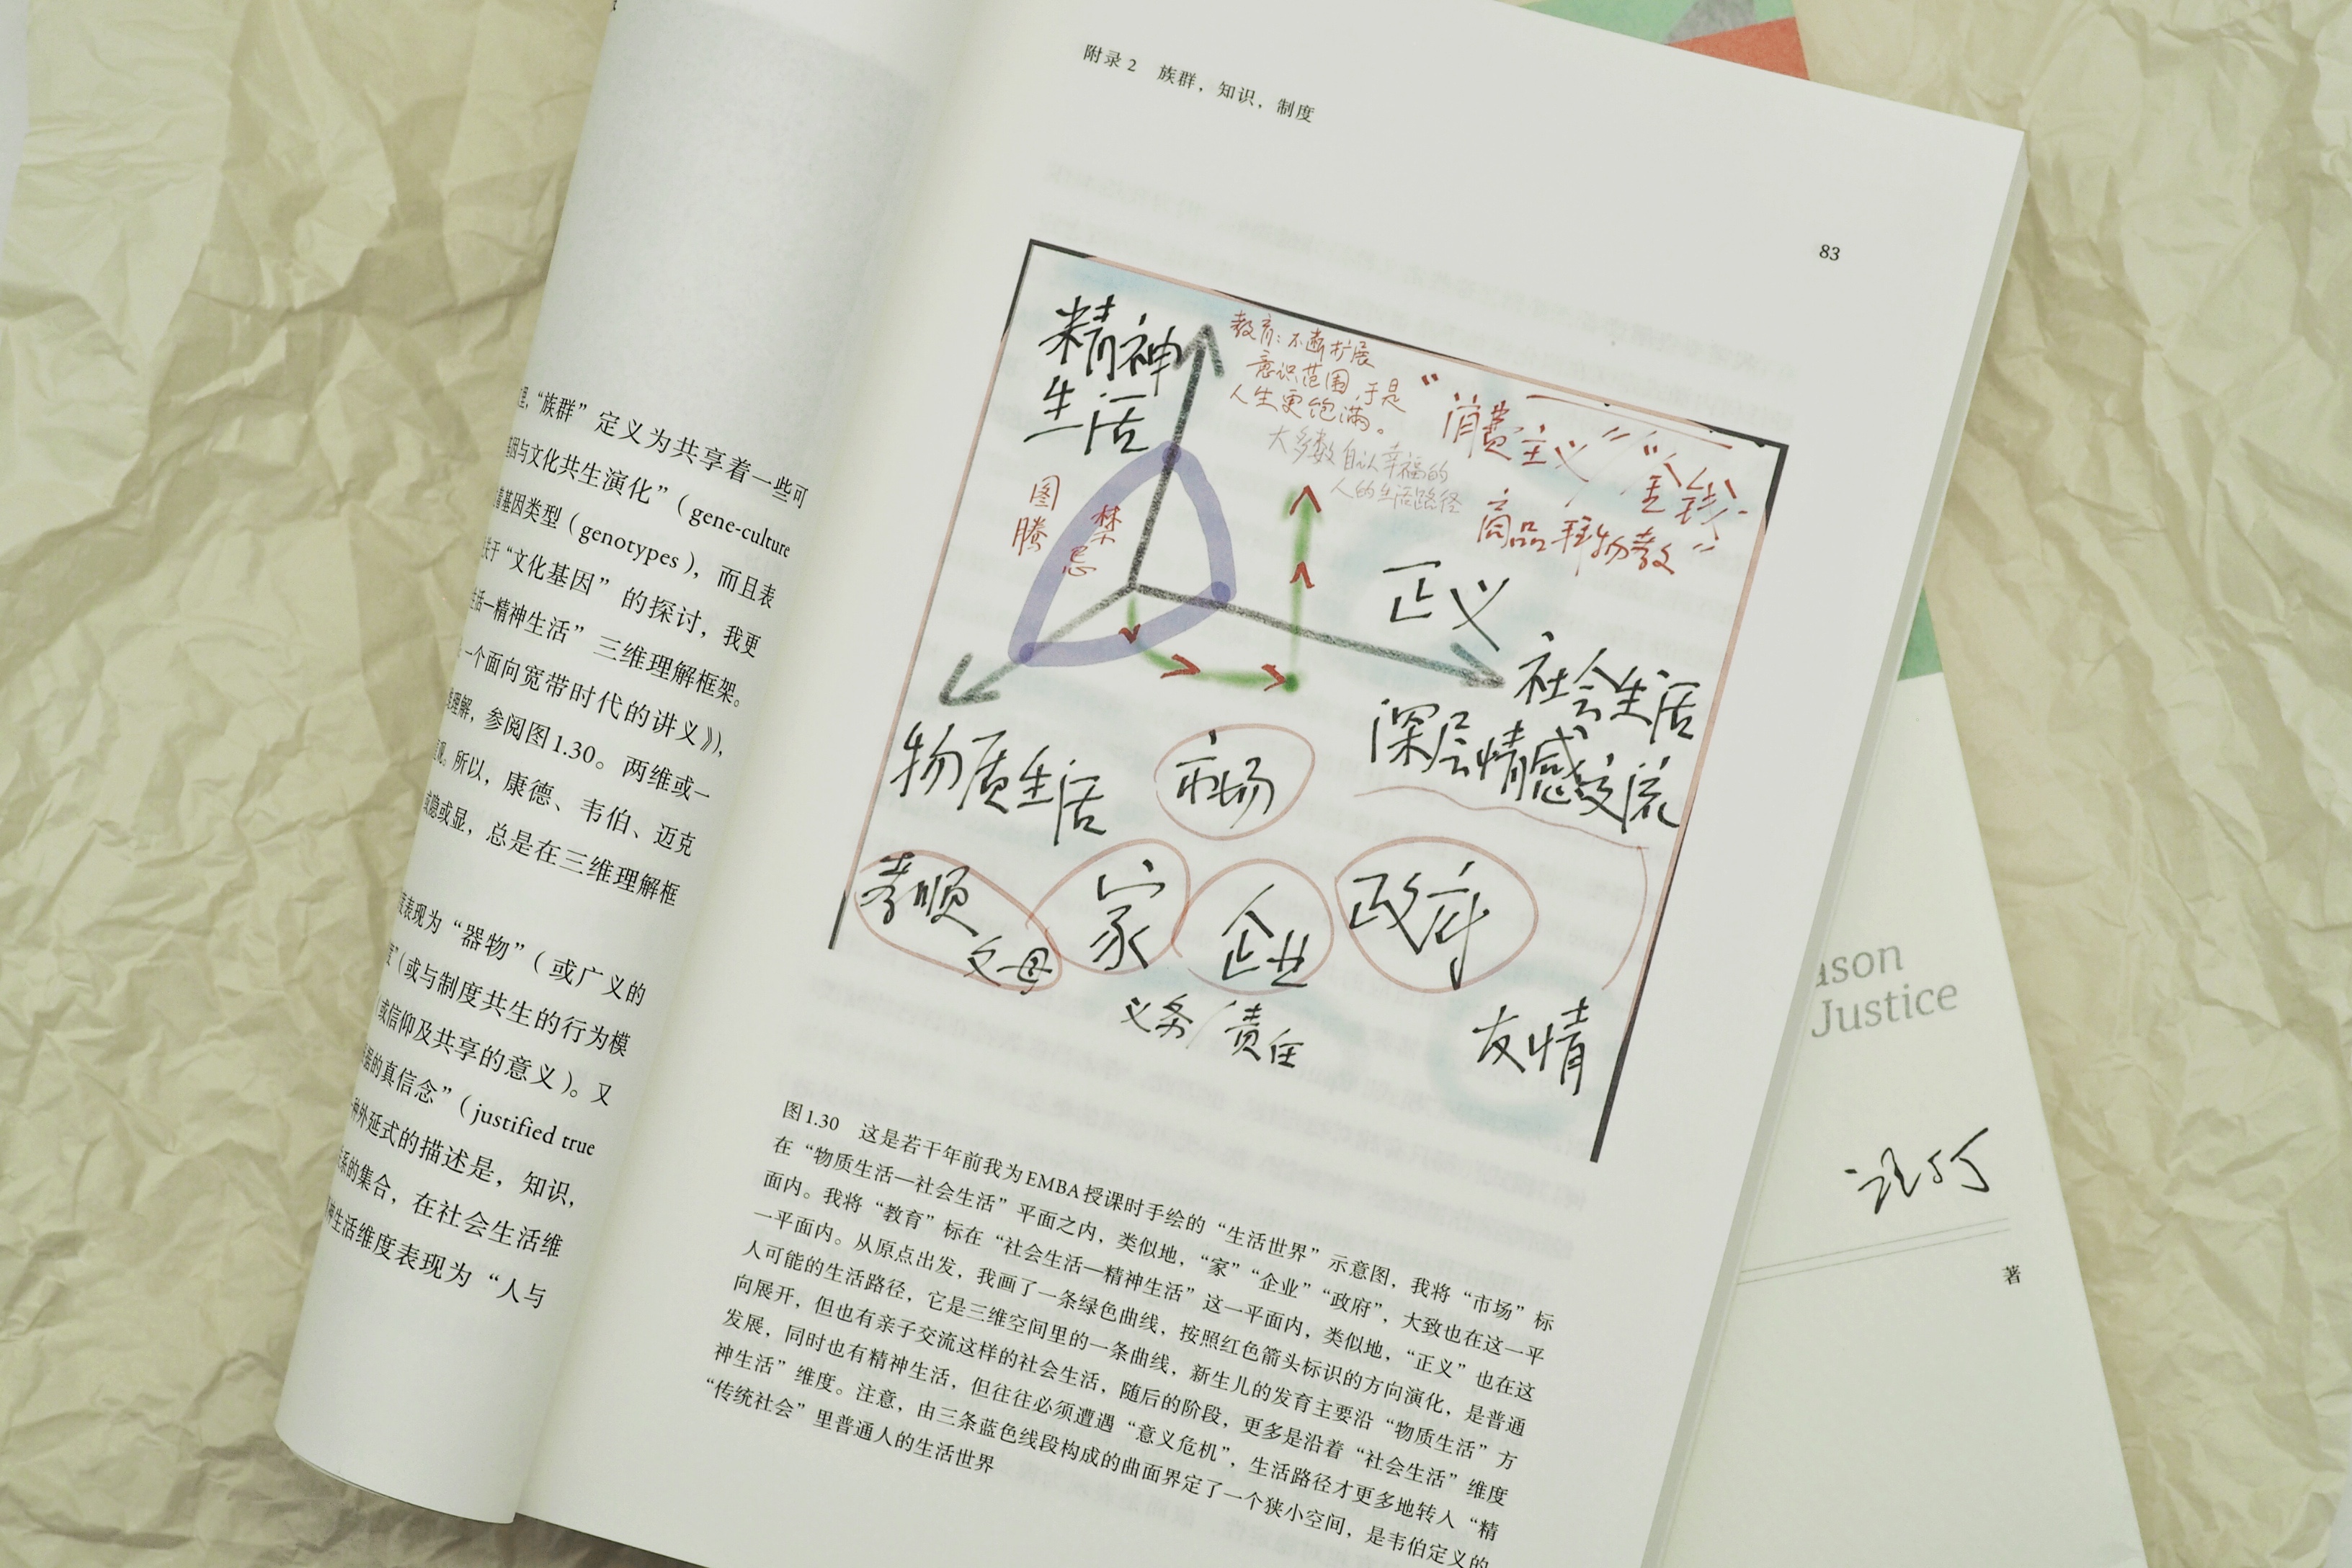 “族群”定义为共享着一些可
基因与文化共生演化”（gene-culture
基因类型（genotypes），而且表
关于“文化基因”的探讨，我更
生活—精神生活”三维理解框架。
一个面向宽带时代的讲义》），
理解，参阅图1.30。两维或一
所以，康德、韦伯、迈克
或隐或显，总是在三维理解框
表现为“器物”（或广义的
（或与制度共生的行为模
或信仰及共享的意义）。又
的真信念”（justified true
种外延式的描述是，知识，
系的集合，在社会生活维
神生活维度表现为“人与
附录2 族群，知识，制度
83
精神
生活
教育：不断扩展
意识范围，于是
人生更饱满。
大多数自认幸福的
人的生活路径
“消费主义”“金钱
商品拜物教”
图腾
禁忌
正义
社会生活
深层情感交流
物质生活
市场
孝顺
父母
家
企业
政府
义务/责任
友情
图1.30 这是若干年前我为EMBA授课时手绘的“生活世界”示意图，我将“市场”标
在“物质生活—社会生活”平面之内，类似地，“家”“企业”“政府”，大致也在这一平
面内。我将“教育”标在“社会生活—精神生活”这一平面内，类似地，“正义”也在这
一平面内。从原点出发，我画了一条绿色曲线，按照红色箭头标识的方向演化，是普通
人可能的生活路径，它是三维空间里的一条曲线，新生儿的发育主要沿“物质生活”方
向展开，但也有亲子交流这样的社会生活，随后的阶段，更多是沿着“社会生活”维度
发展，同时也有精神生活，但往往必须遭遇“意义危机”，生活路径才更多地转入“精
神生活”维度。注意，由三条蓝色线段构成的曲面界定了一个狭小空间，是韦伯定义的
“传统社会”里普通人的生活世界
ason
Justice
汪丁丁
著